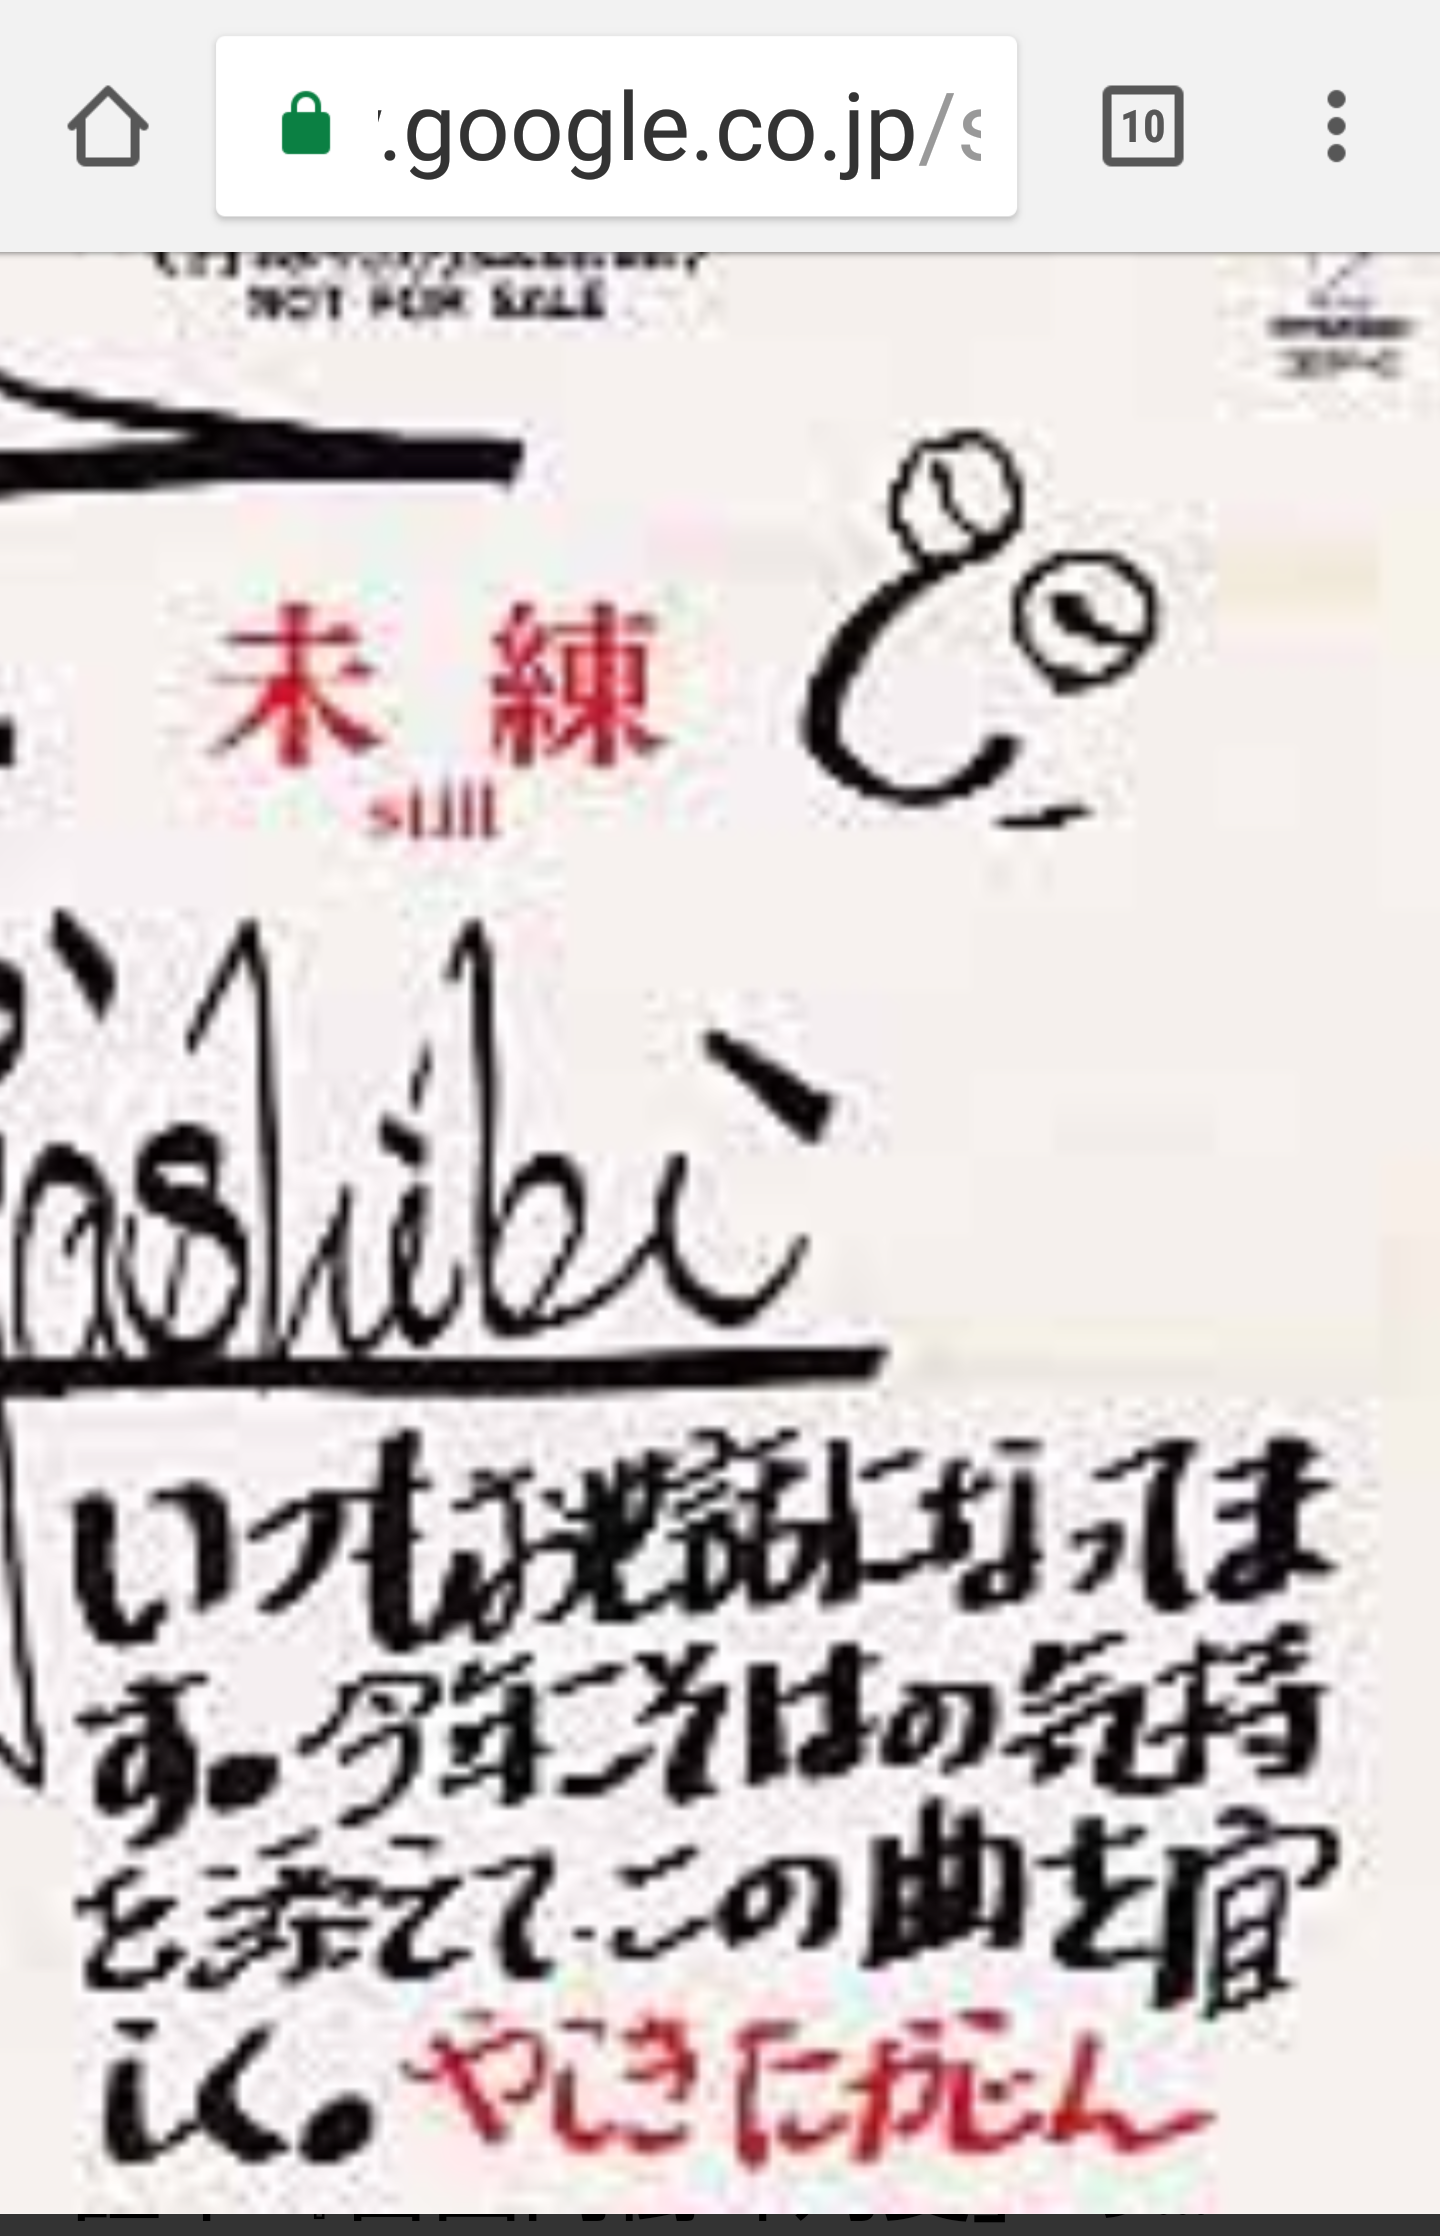 .google.co.jp/s
10
NOT FOR SALE
未練
still
ashibi
いつもお世話になってま
す。今年こそはの気持
を込めて この曲を宜
しく。やしきたかじん